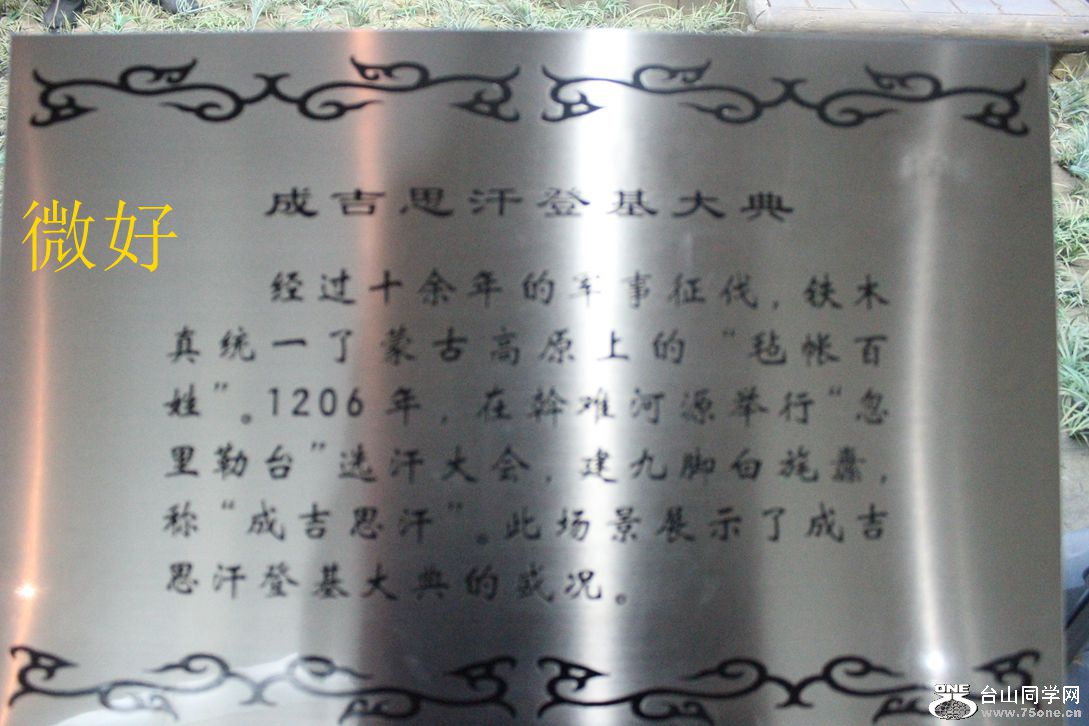 微好
成吉思汗登基大典
经过十余年的军事征伐，铁木
真统一了蒙古高原上的“毡帐百
姓”。1206年，在斡难河源举行“忽
里勒台”选汗大会，建九脚白旄纛，
称“成吉思汗”。此场景展示了成吉
思汗登基大典的盛况。
ONE
台山同学网
www.75one.cn